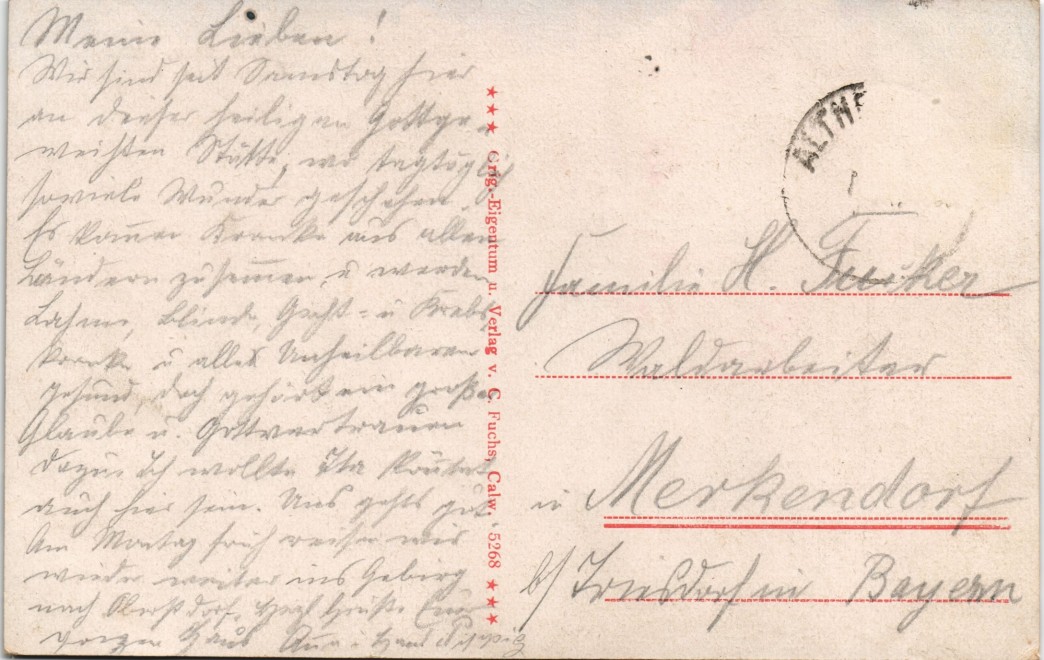 Meine Lieben!
Wir sind seit Samstag hier
an dieser heiligen Gottge-
weihten Stätte, wo tagtäglich
soviele Wunder geschehen.
Es komen Kranke aus allen
Ländern zusamen, u werden
Lahme, Blinde, Gicht- u Krebs
kranke u alles Unheilbaren
gesund, doch gehört ein großer
Glaube u. Gottvertrauen
dazu. Ich wollte Ihr könntet
auch hier sein. Uns gehts gut.
Am Montag früh reisen wir
wieder weiter ins Gebirg
nach Oberstdorf. Herzl Grüße Eure
Haus
★★★ Orig.-Eigentum u. Verlag v. C. Fuchs, Calw. 5268 ★★★
ALTH
Familie H.
Waldarbeiter
in Merkendorf
b/ Triesdorf in Bayern